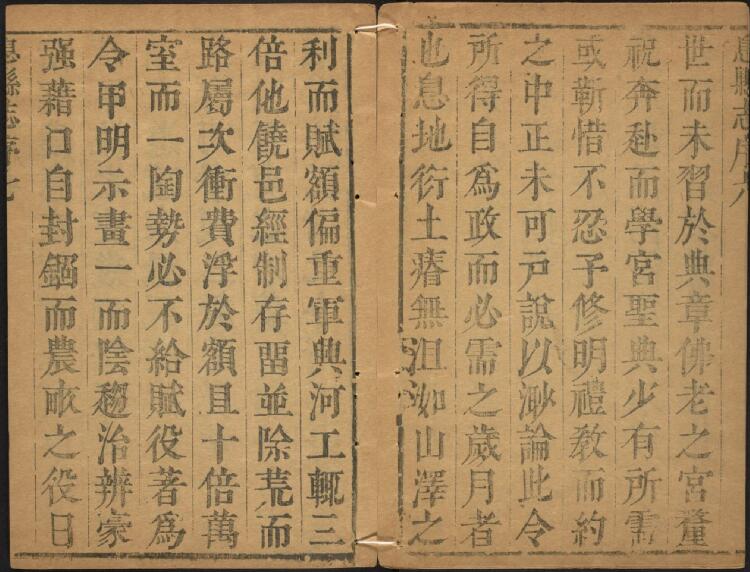 息縣志序六
世而未習於典章佛老之宮釐
祝奔赴而學宮聖典少有所需
或靳惜不忍予修明禮敎而約
之中正未可戸說以渺論此令
所得自爲政而必需之歲月者
也息地衍土瘠無沮洳山澤之
利而賦額偏重軍興河工輒三
倍他饒邑經制存畱並除荒而
路屬次衝費浮於額且十倍萬
室而一陶勢必不給賦役著爲
令甲明示畫一而陰趨治辨豪
强藉口自封錮而農畝之役日
息縣志序七